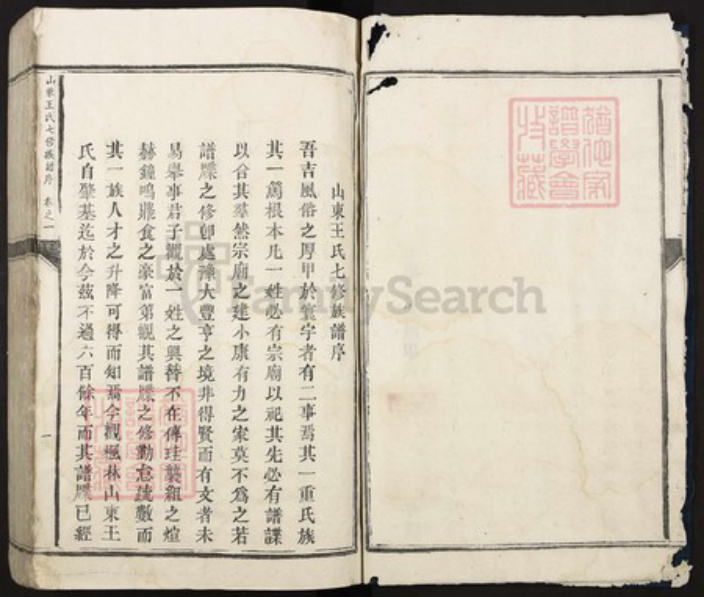 山東王氏七修族譜序
吾吉風俗之厚甲於寰宇者有二事焉其一重氏族
其一篤根本凡一姓必有宗廟以祀其先必有譜諜
以合其羣然宗廟之建小康有力之家莫不為之若
譜牒之修卽處豫大豐亨之境非得賢而有文者未
易舉事君子觀於一姓之興替不在傳珪襲組之煊
赫鐘鳴鼎食之豪富第觀其譜牒之修勤怠疏數而
其一族人才之升降可得而知焉今觀楓林山東王
氏自肇基迄於今茲不過六百餘年而其譜牒已經
山東王氏七修族譜序 卷之一
一
FamilySearch